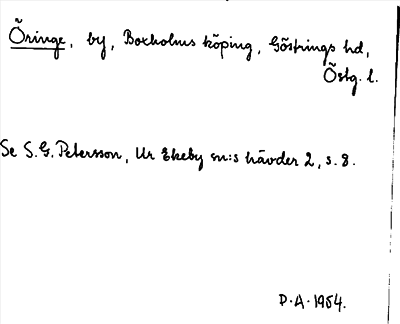 Öringe, by, Boxholms köping, Göstrings hd,
Östg. l.
Se S.G. Petersson, Ur Ekeby sn:s hävder 2, s. 8.
P.A. 1954.